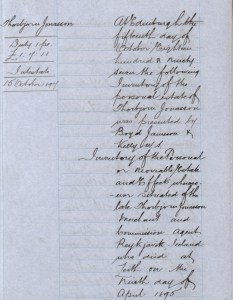 Thorbjorn Jonasson
Duty &c
£1.9.11
Intestate
15 October 1897
At Edinburgh the
fifteenth day of
October Eighteen
hundred & ninety
seven the following
Inventory of the
personal estate of
Thorbjorn Jonasson
was presented by
Boyd Jameson &
Kelly W.S.
Inventory of the Personal
or Moveable Estate
and Effects wheresoever
situated of the
late Thorbjorn Jonasson
Merchant and
Commission agent
Reykjavik Iceland
who died at
Leith on the
Ninth day of
April 1895